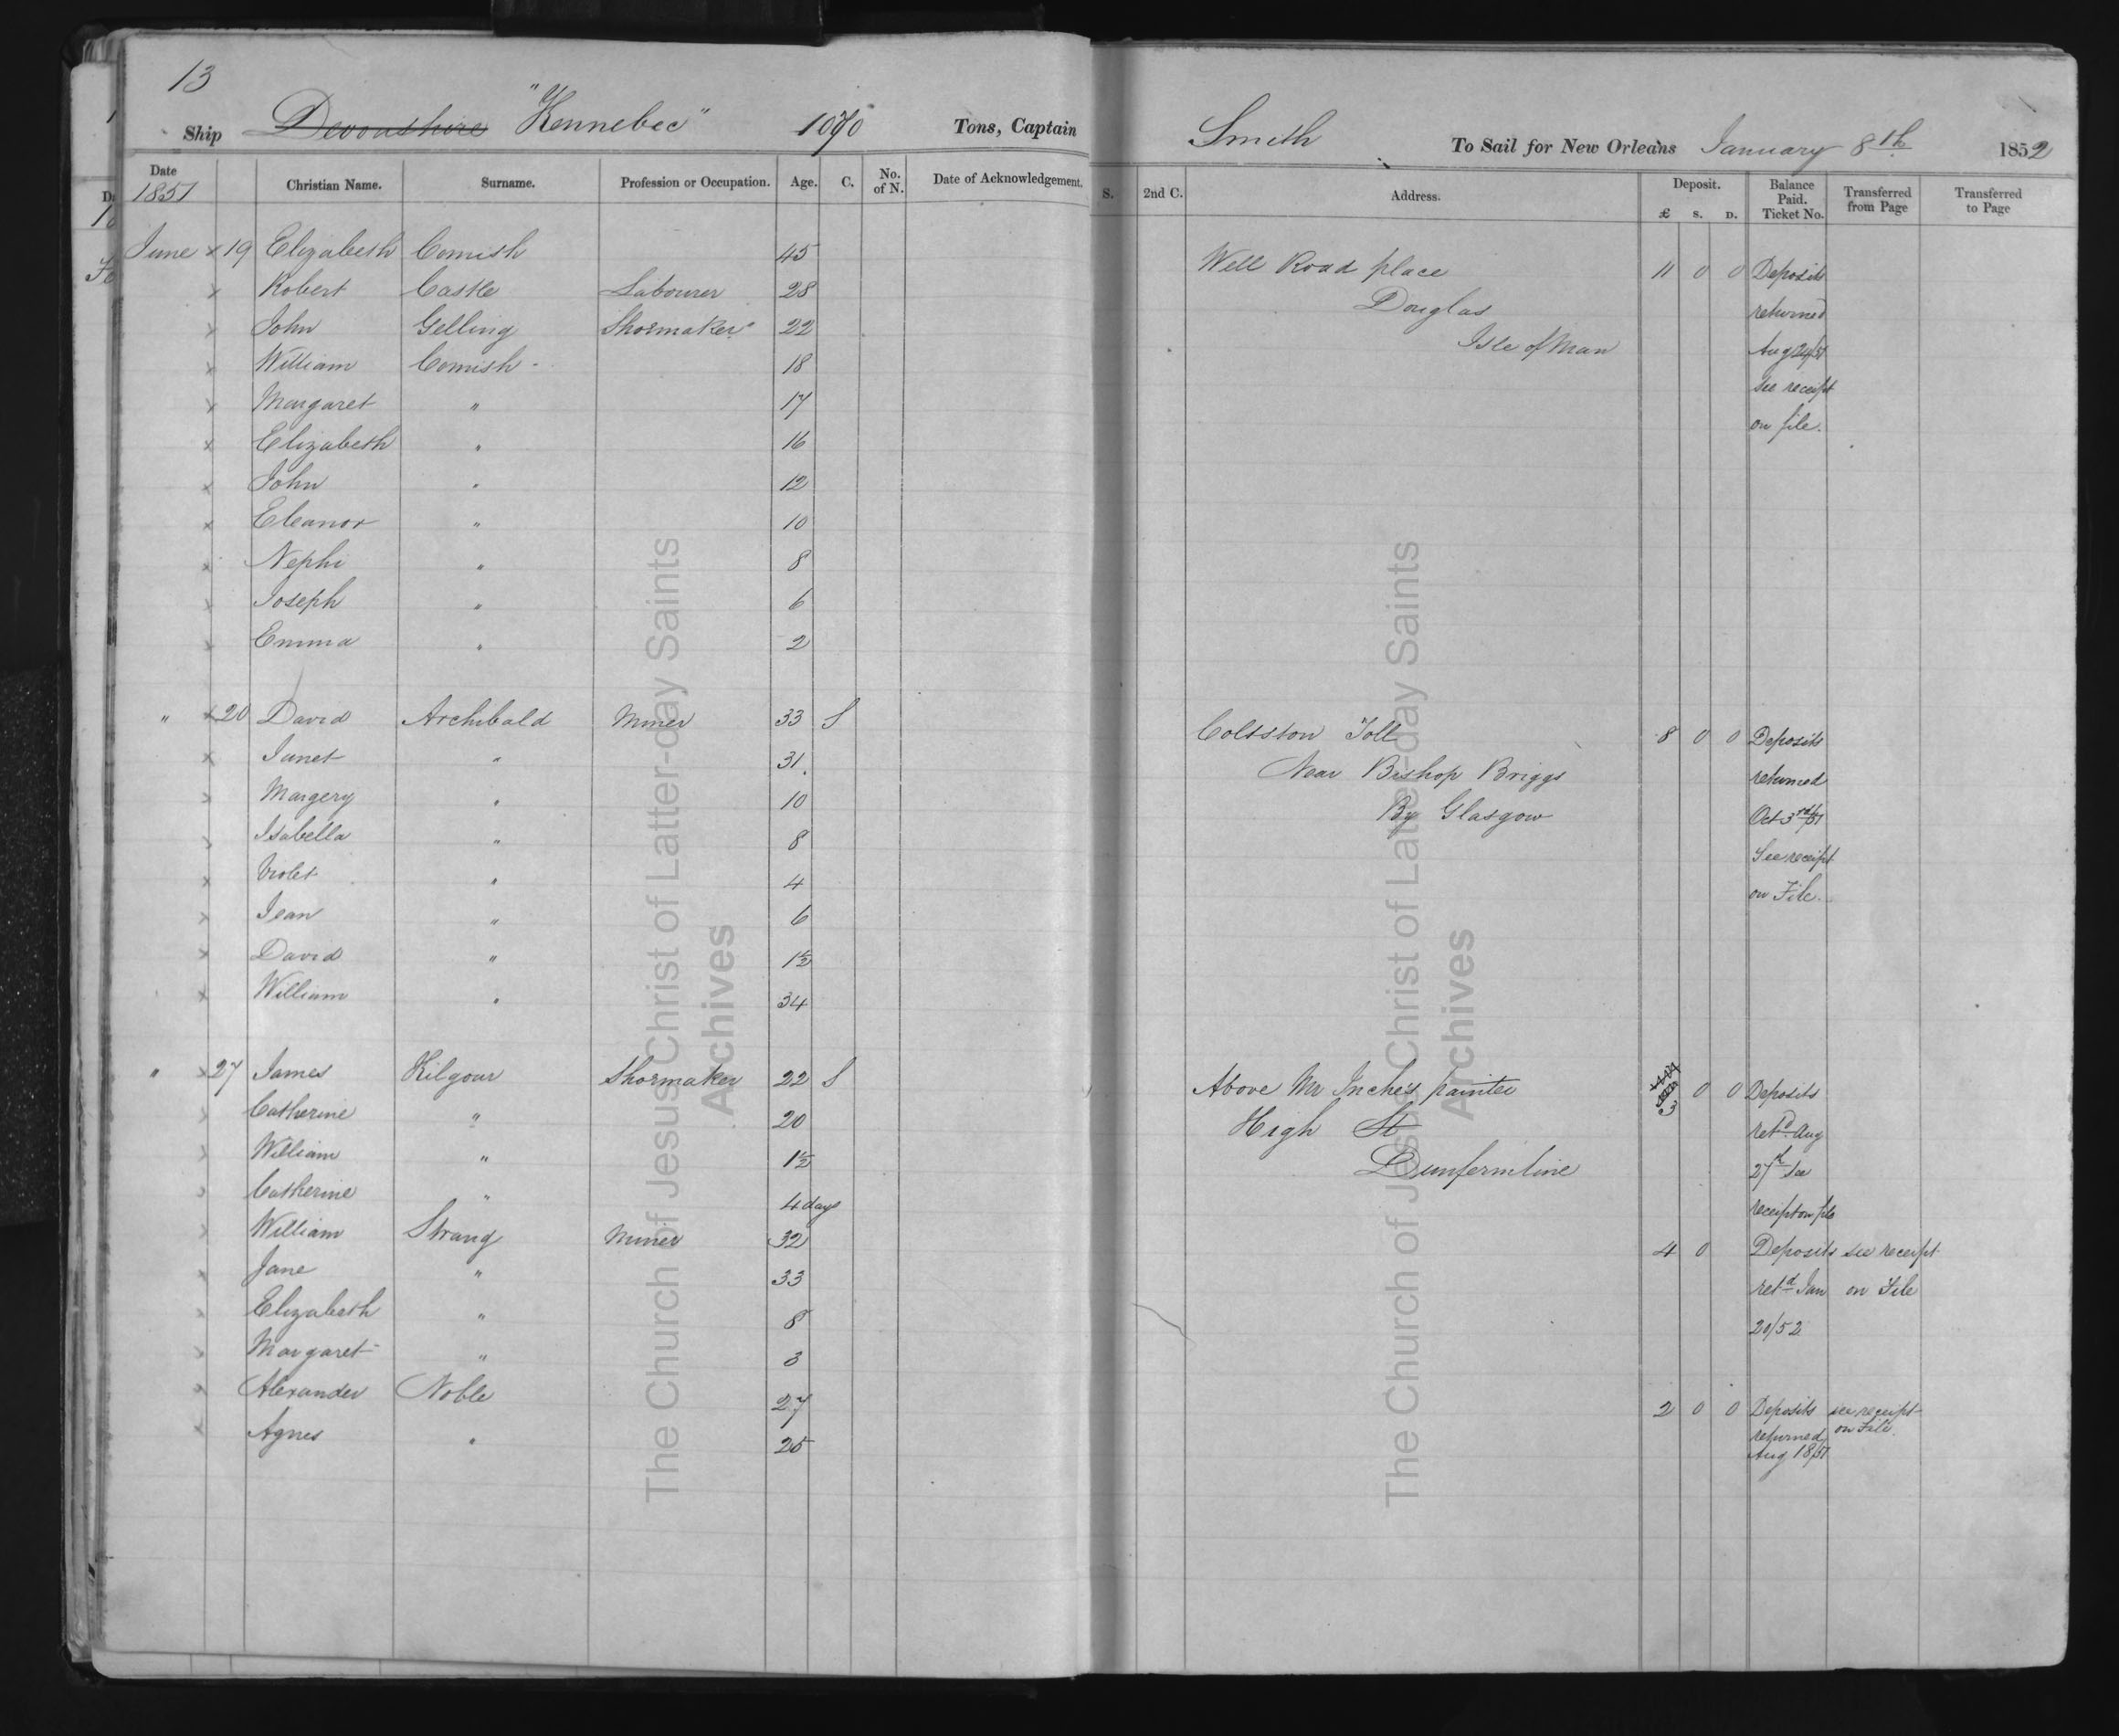 13
Ship Devonshire "Kennebec" 1070 Tons, Captain Smith To Sail for New Orleans January 8th 1852
Date Christian Name. Surname. Profession or Occupation. Age. C. No. of N. Date of Acknowledgement. S. 2nd C. Address. Deposit. £ S. D. Balance Paid. Ticket No. Transferred from Page Transferred to Page
1851
June x 19 Elizabeth Cornish 45 Well Road place 11 0 0 Deposits
x Robert Castle Labourer 28 Douglas returned
x John Gelling Shoemaker 22 Isle of Man Aug 24/51
x William Cornish 18 see receipt
x Margaret " 17 on file.
x Elizabeth " 16
x John " 12
x Eleanor " 10
x Nephi " 8
x Joseph " 6
x Emma " 2
" x 20 David Archibald Miner 33 S Coltston Toll 8 0 0 Deposits
x Janet " 31 Near Bishop Briggs returned
x Margery " 10 By Glasgow Oct 3rd/51
x Isabella " 8 See receipt
x Violet " 4 on File.
x Jean " 6
x David " 1½
x William " 34
" x 27 James Kilgour Shoemaker 22 S Above Mr Inches painter 3 0 0 Deposits
x Catherine " 20 High St retd Aug
x William " 1½ Dunfermline 27th See
x Catherine " 4 days receipt on file
x William Strang Miner 32 4 0 Deposits see receipt
x Jane " 33 retd Jan on File
x Elizabeth " 8 20/52
x Margaret " 3
x Alexander Noble 27 2 0 0 Deposits see receipt
x Agnes " 25 returned on File.
Aug 18/51
The Church of Jesus Christ of Latter-day Saints
Archives
The Church of Jesus Christ of Latter-day Saints
Archives